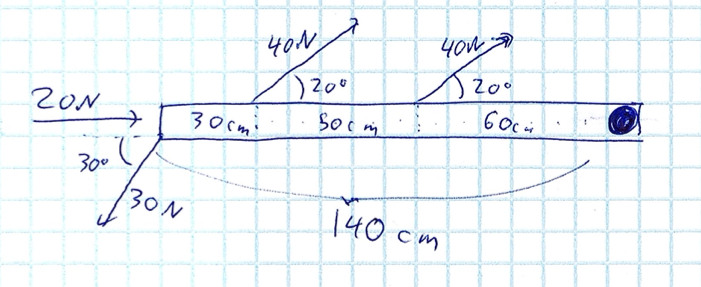 40N 40N
20° 20°
20N
30cm 50cm 60cm
30°
30N
140 cm